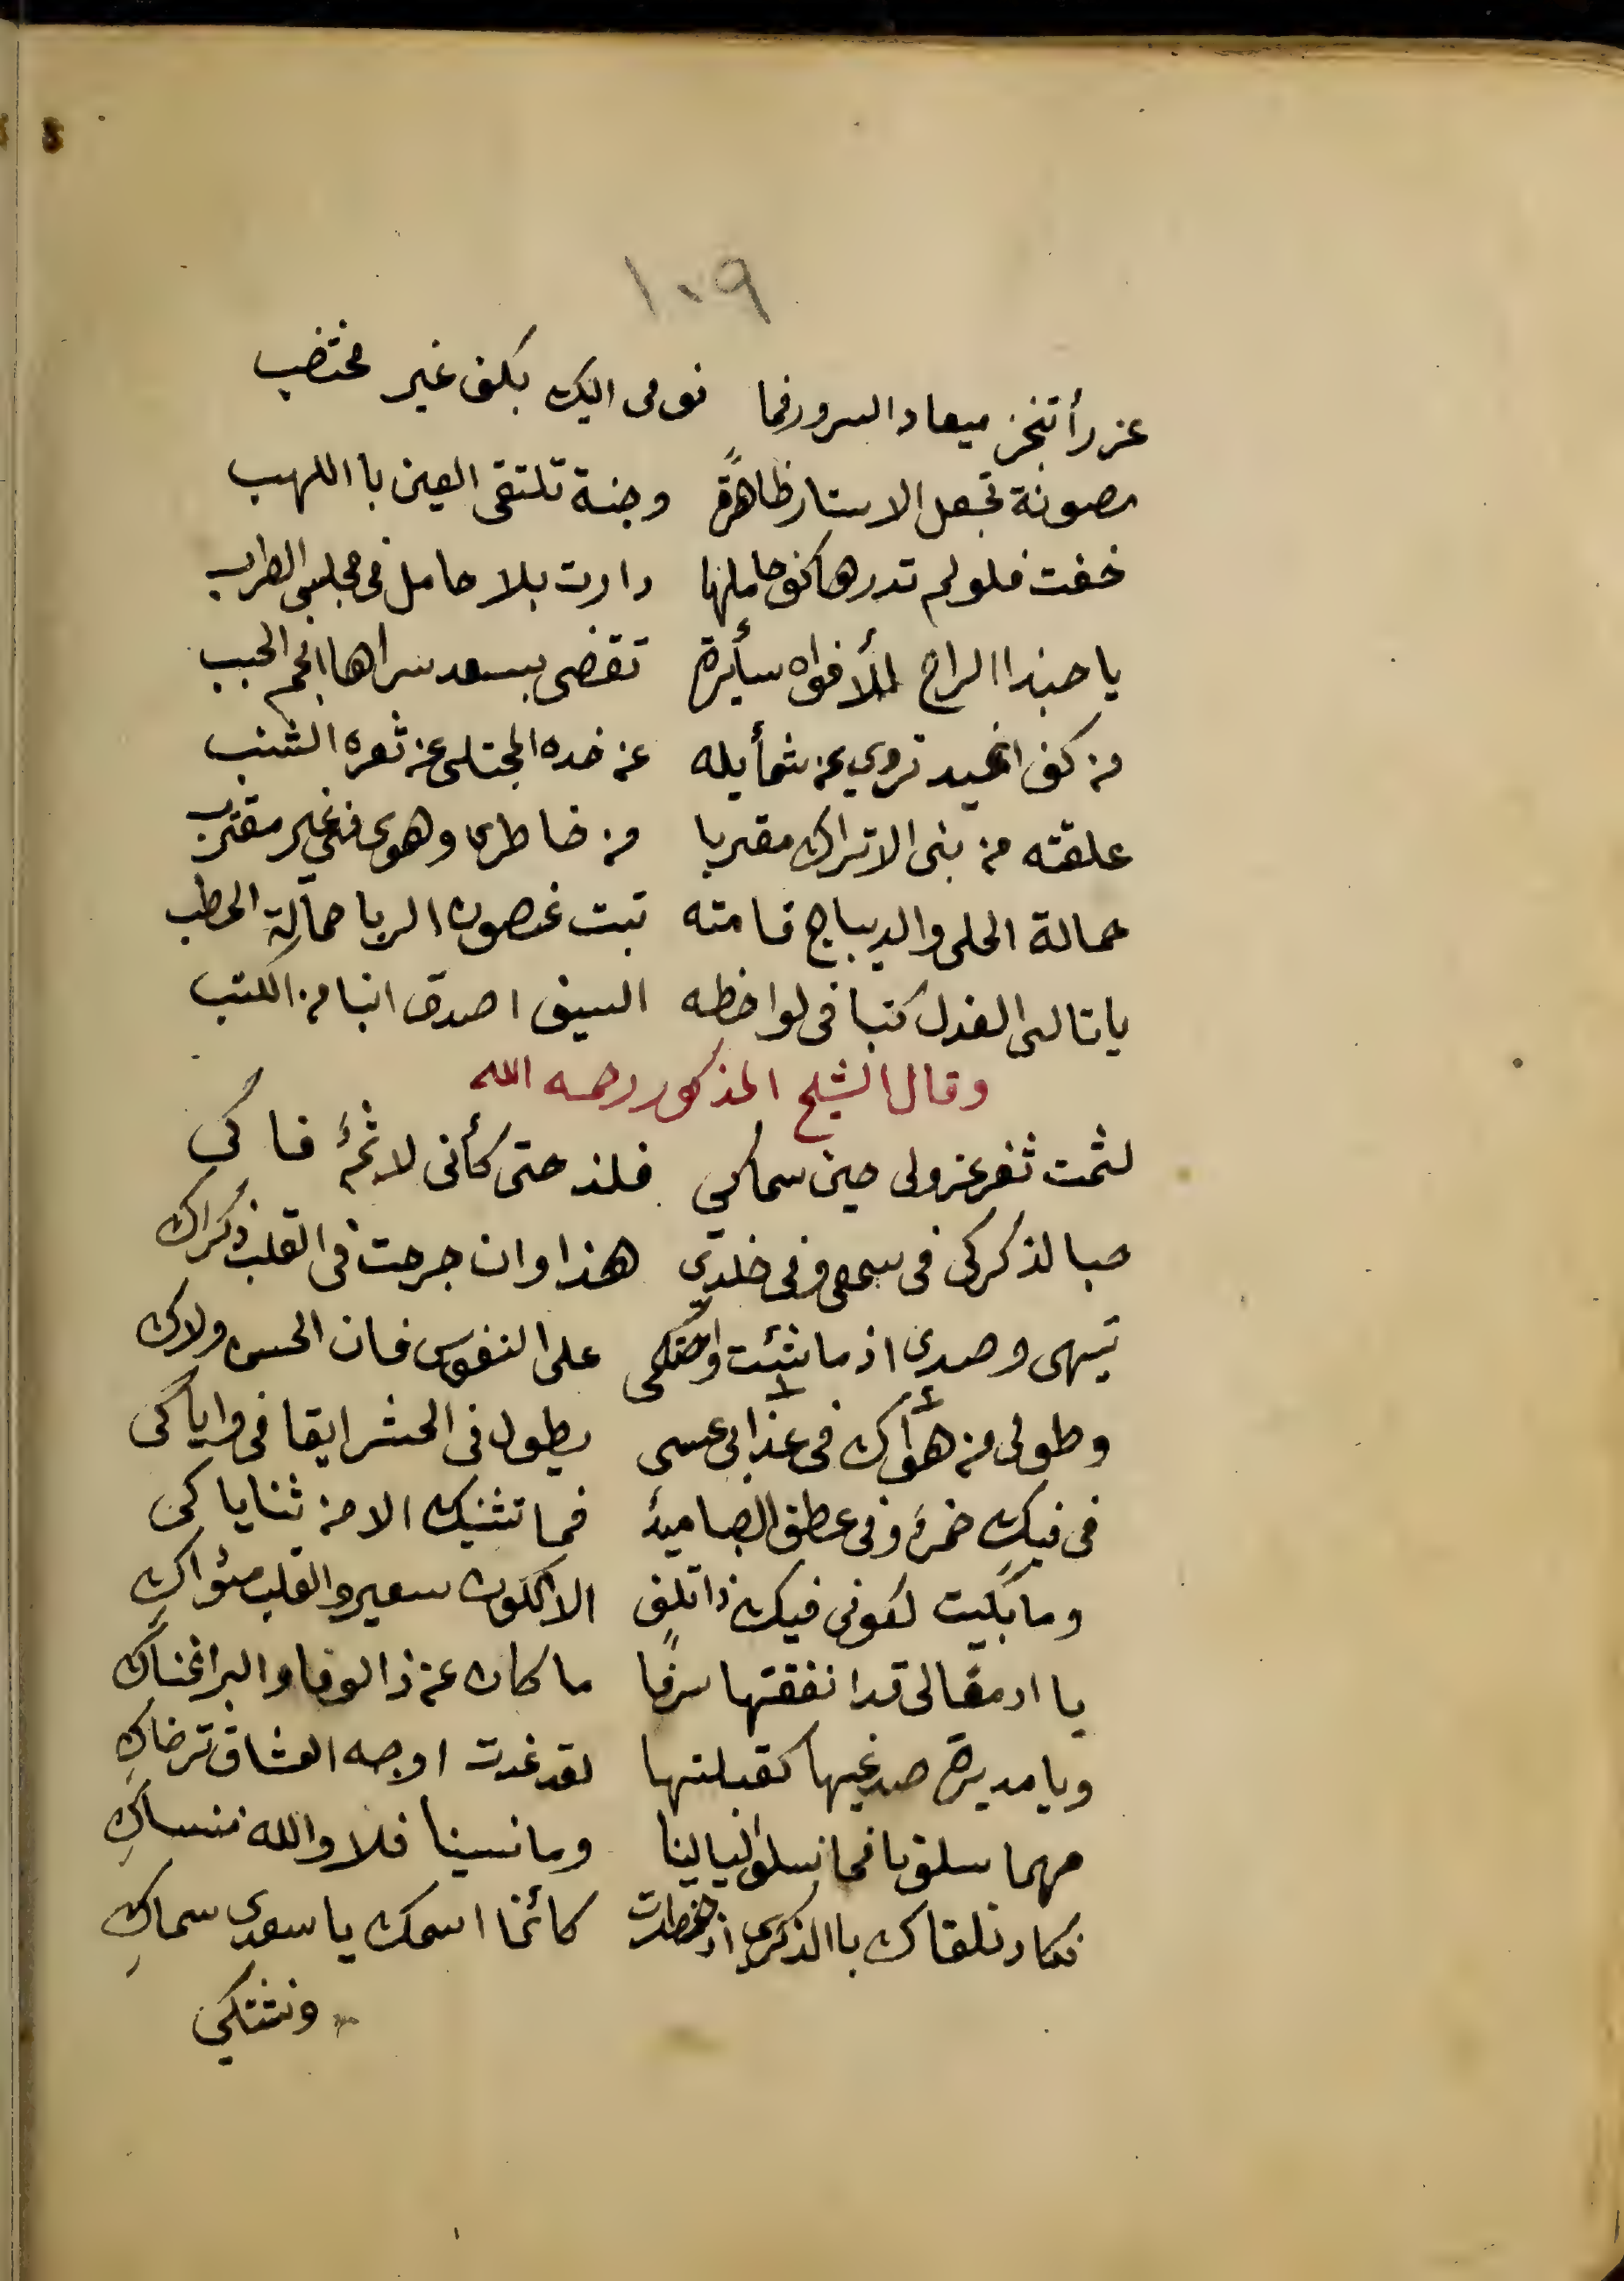 ١٠٩
عزرأ تنجز ميعاد السرور فما نومى اليك بكف غير مختضب
مصونة تجعل الاستار ظاهرةً وجنة تلتقى العين با اللهب
خفت فلو لم تدرها كف حاملها دارت بلا حامل فى مجلس الطرب
يا حبذا الراح للأفواه سأيرة تقضى بسعد سراها انجم الحبب
من كف اغيد تروي عن شمأيله عن خده المجتلى عن ثغره الشنب
علقته من بنى الاتراك مقتربا من خاطرى وهوى منى غير مقترب
حمالة الحلى والديباج قامته تبت غصون الربا حمالة الحطب
يا تالى العذل كتبا فى لواحظه السيف اصدق انبا من الكتب
وقال الشيخ المذكور رحمه الله
لثمت ثغر عزولى حين سماكي فلذ حتى كأنى لاثمٌ فاكي
حبا لذكركى فى سمعى وفى خلدي هذا وان جرحت فى القلب ذكراك
تيهى وصدى اذ ما شئت واحتكمى على النفوس فان الحسن ولاك
وطولى من هوأك فى عذابى عسى يطول فى الحشر ايقافى واياكى
فى فيكِ خمرٌ وفى عطف الصبا ميدٌ فما تثنيك الا من ثناياكى
وما بكيت لكونى فيك ذا تلف الا لكون سعير والقلب مئواكِ
يا ادمعا لى قد انفقتها سرفًا ما كان عن ذا الوفا والبر اغناكِ
ويا مديرة صدغيها لقبلتها لقد غدت اوجه العشاق ترضاكِ
مهما سلونا فما نسلو ليالينا وما نسينا فلا والله ننساكِ
نكاد نلقاك با الذكرى اذ خطرت كأنما اسمك يا سعدى سماكِ
ونشتكي